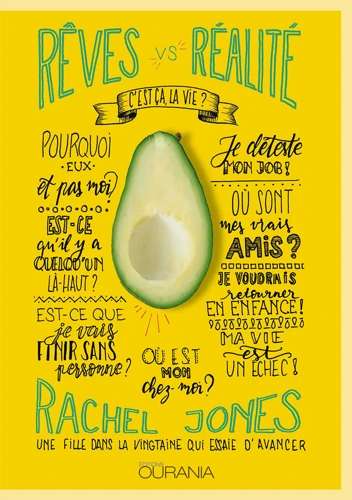 RÊVES vs RÉALITÉ
C'EST ÇA, LA VIE ?
POURQUOI
EUX
et pas moi?
EST-CE
qu'il y a
QUELQU'UN
LÀ-HAUT ?
EST-CE QUE
je vais
FINIR SANS
personne?
Je déteste
MON JOB!
OÙ SONT
mes vrais
AMIS ?
JE VOUDRAIS
retourner
EN ENFANCE!
MA VIE
est
UN ÉCHEC !
OÙ EST
MON
chez-moi?
RACHEL JONES
UNE FILLE DANS LA VINGTAINE QUI ESSAIE D'AVANCER
ÉDITIONS
OURANIA